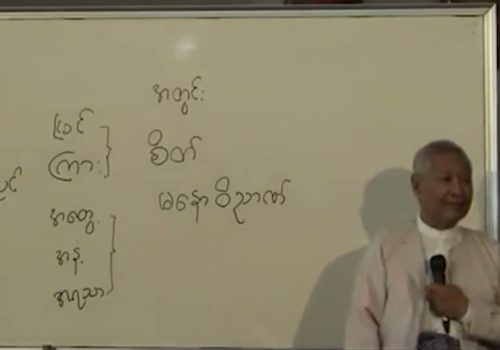 အတွင်း
မြင်
ကြား
စိတ်
မနောဝိညာဏ်
အတွေ့
အနံ့
အရသာ